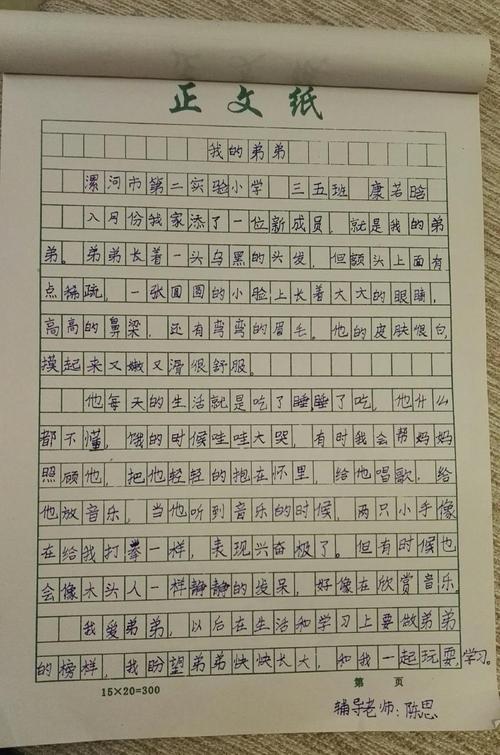 正文纸
我的弟弟
漯河市第二实验小学 三五班 康若晗
八月份我家添了一位新成员，就是我的弟
弟。弟弟长着一头乌黑的头发，但额头上面有
点稀疏，一张圆圆的小脸上长着大大的眼睛，
高高的鼻梁，还有弯弯的眉毛。他的皮肤很白，
摸起来又嫩又滑很舒服。
他每天的生活就是吃了睡睡了吃，他什么
都不懂，饿的时候哇哇大哭，有时我会帮妈妈
照顾他，把他轻轻的抱在怀里，给他唱歌，给
他放音乐，当他听到音乐的时候，两只小手像
在给我打拳一样，表现兴奋极了。但有时候也
会像木头人一样静静的发呆，好像在欣赏音乐。
我爱弟弟，以后在生活和学习上要做弟弟
的榜样，我盼望弟弟快快长大，和我一起玩耍，学习。
15×20=300 第 页
辅导老师：陈思